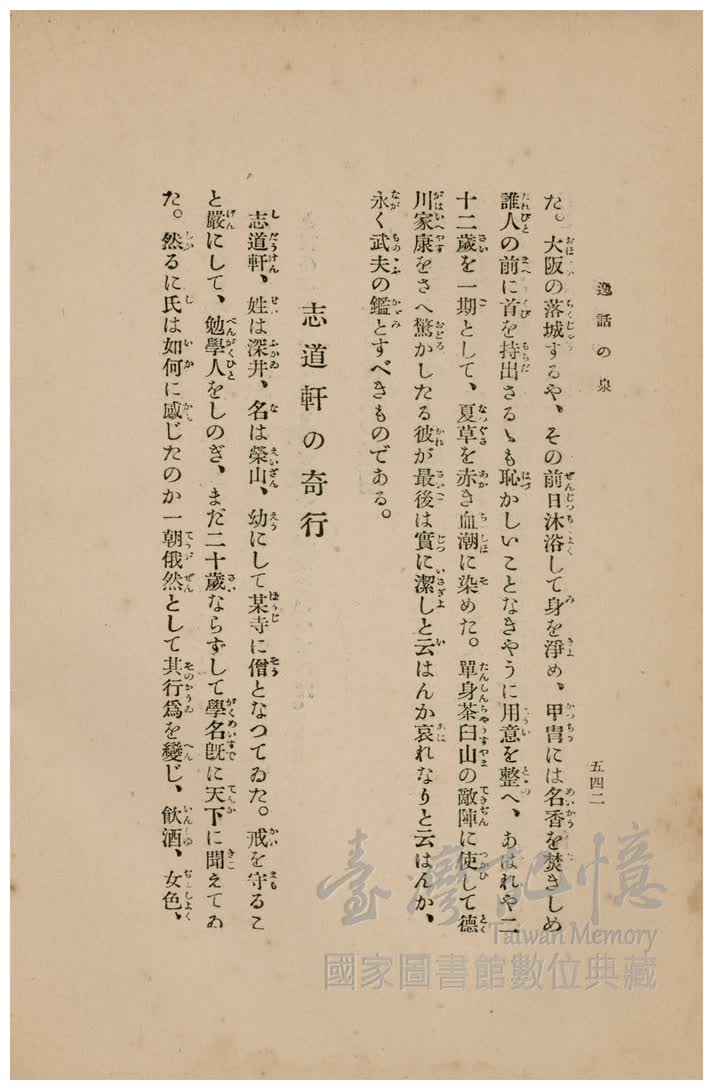 逸話の泉
五四二
た。大阪の落城するや、その前日沐浴して身を淨め、甲冑には名香を焚きしめ
誰人の前に首を持出さるゝも恥かしいことなきやうに用意を整へ、あはれや二
十二歲を一期として、夏草を赤き血潮に染めた。單身茶臼山の敵陣に使して德
川家康をさへ驚かしたる彼が最後は實に潔しと云はんか哀れなりと云はんか、
永く武夫の鑑とすべきものである。
志道軒の奇行
志道軒、姓は深井、名は榮山、幼にして某寺に僧となつてゐた。戒を守るこ
と嚴にして、勉學人をしのぎ、まだ二十歲ならずして學名旣に天下に聞えてゐ
た。然るに氏は如何に感じたのか一朝俄然として其行爲を變じ、飮酒、女色、
臺灣記憶
Taiwan Memory
國家圖書館數位典藏